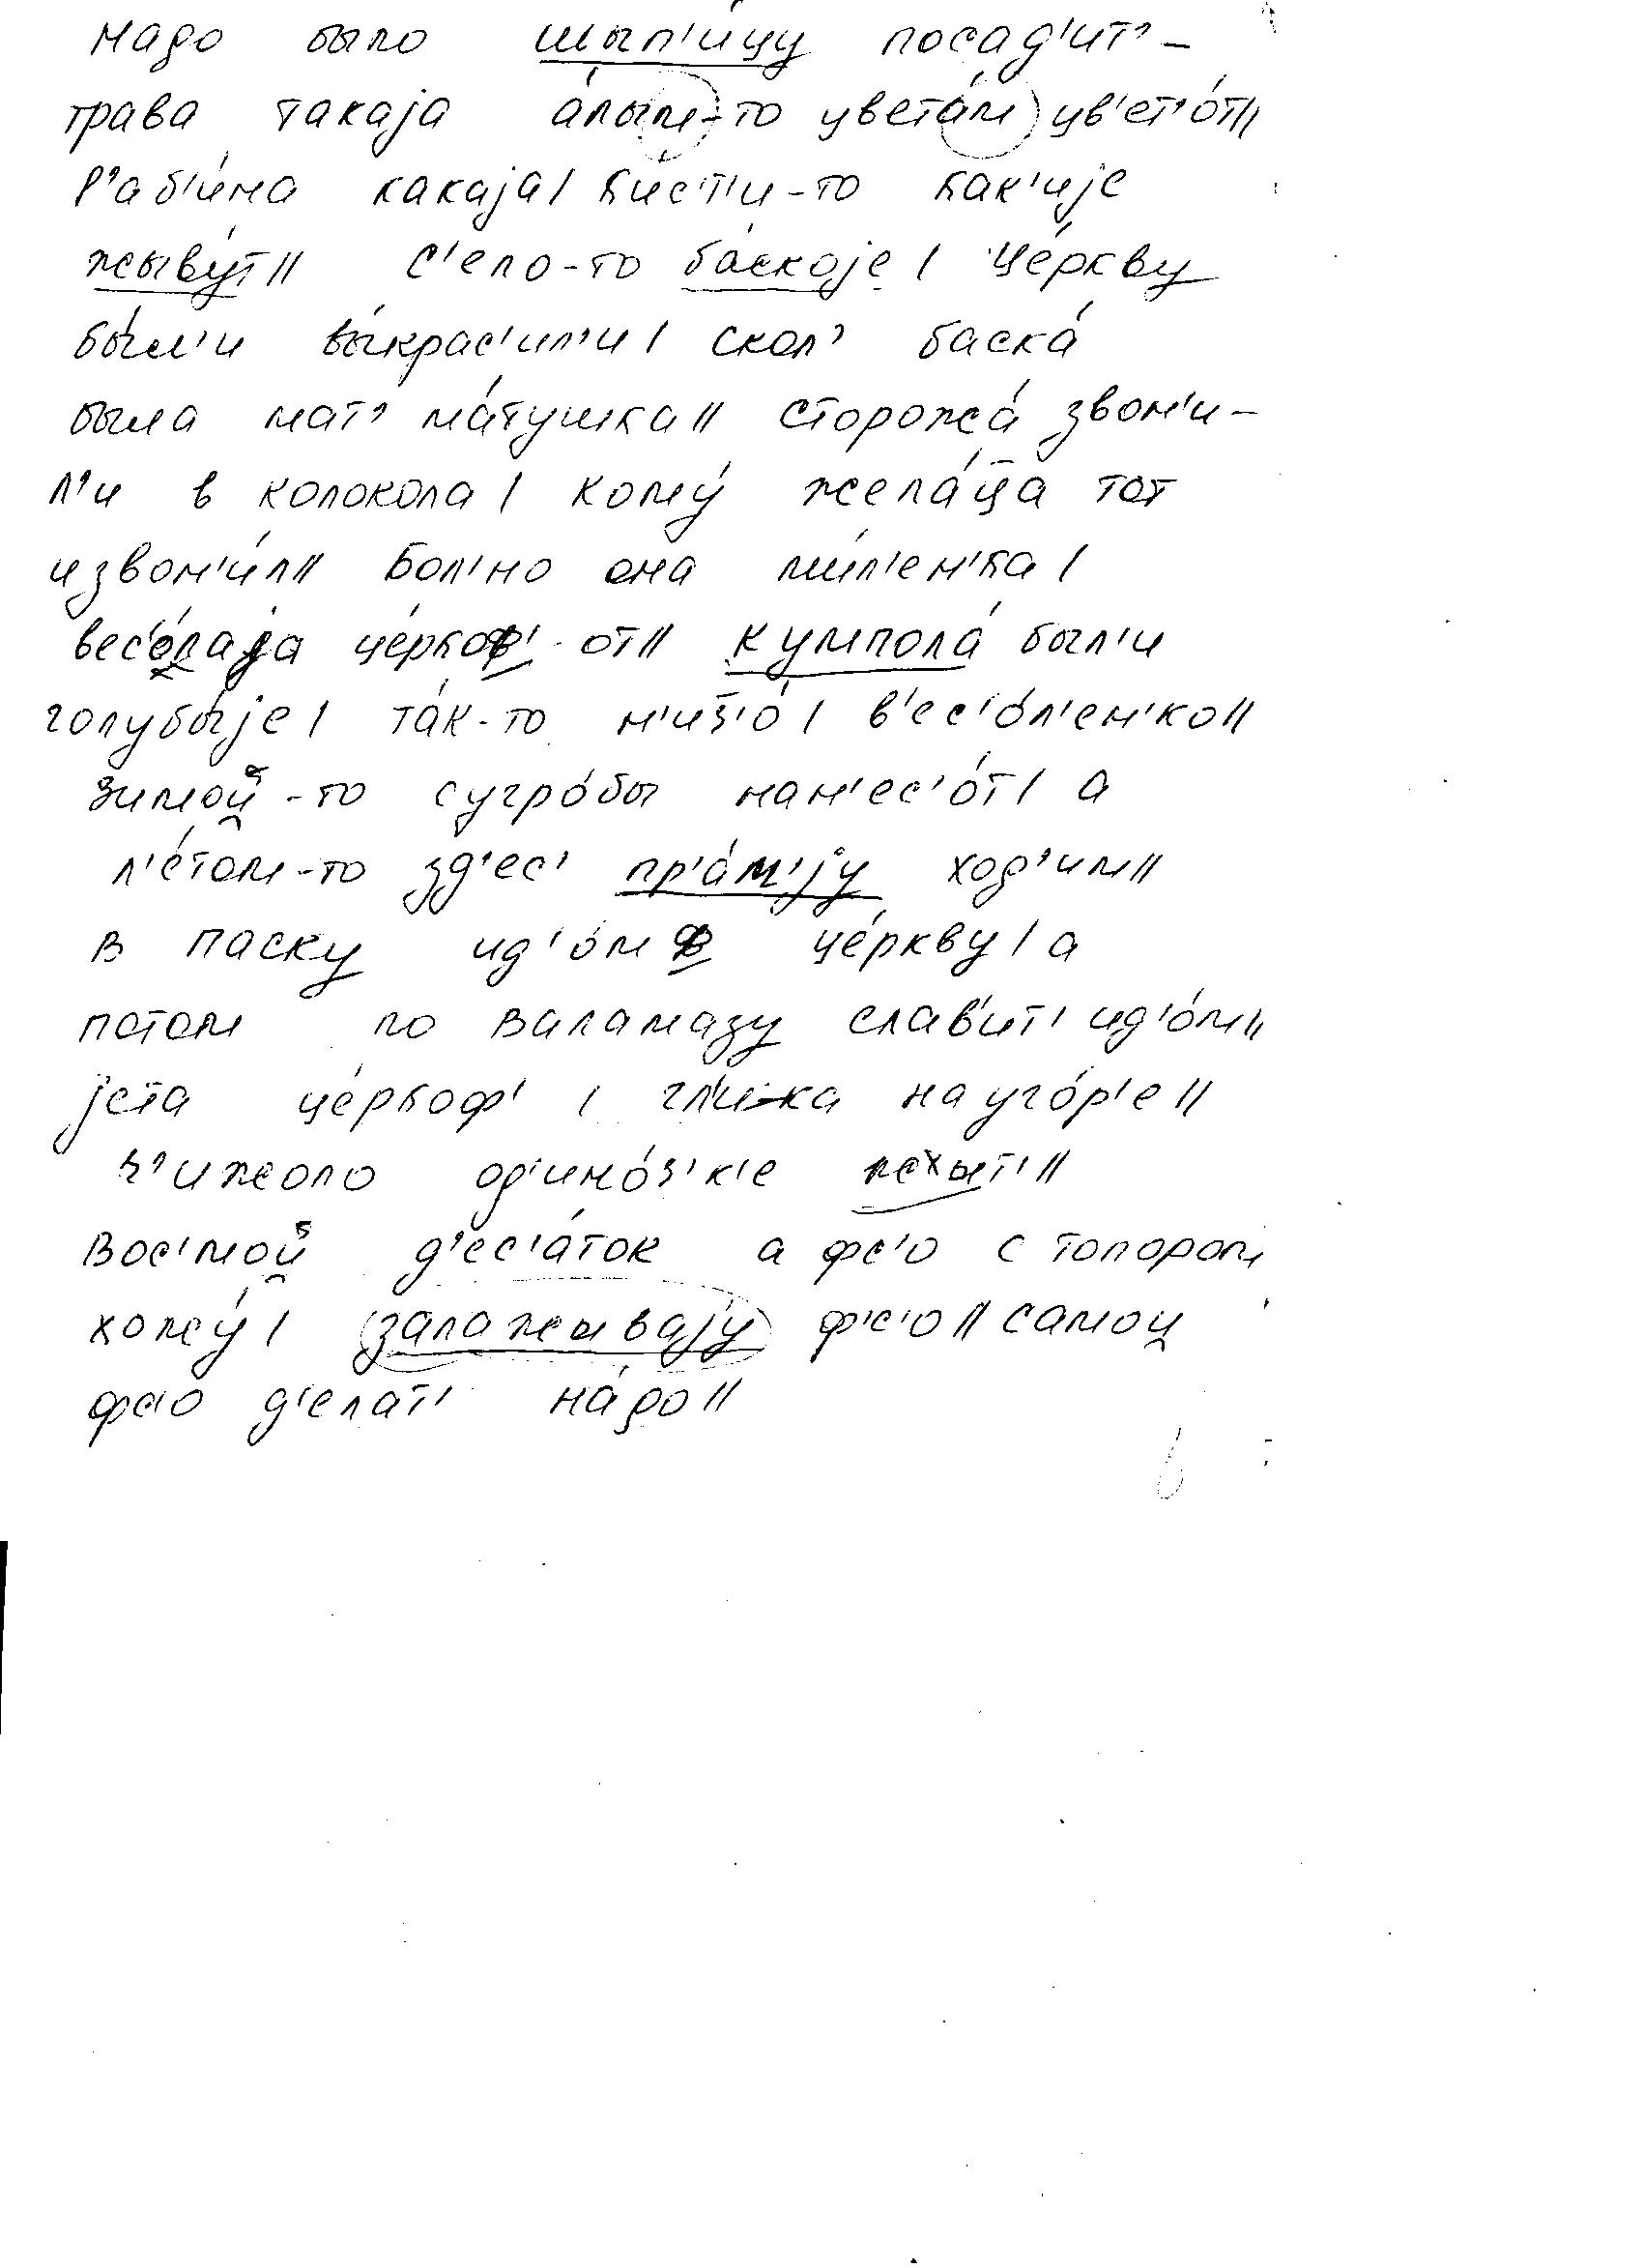 надо было шып'и́цу посад'ит' –
трава такаjа а́лым-то цвета́м цв'ет'о́т||
р'аб'и́на какаjа| ки́ст'и-то как'иjе
жыву́т|| с'ело-то ба́скоjе | це́ркву
бы́л'и вы́крас'ил'и | скол' баска́
была мат' ма́тушка|| сторожа́ звон'и–
л'и в колокола | кому́ жела́ц̄а тот
извон'и́л|| бол'но она ми́л'ен'ка |
вес'о́лаjа це́ркоф'-от|| кумпола́ был'и
голубы́jе | та́к-то н'ич'о́ | в'ес'о́л'ен'ко||
зимой-то сугро́бы нан'ес'о́т | а
л'е́том-то зд'ес' пр'а́м'jу ход'им||
в паску ид'о́м ф це́ркву | а
потом по валамазу слав'ит' ид'о́м||
jета це́ркоф' | гл'и-ка на уго́р'е ||
ч'ижоло од'ино́ч'к'е пехыт'||
вос'мой д'ес'а́ток а фс'о с топором
хожу́ | залажываjу ф'с'о || самоц
фс'о д'елат' на́до||